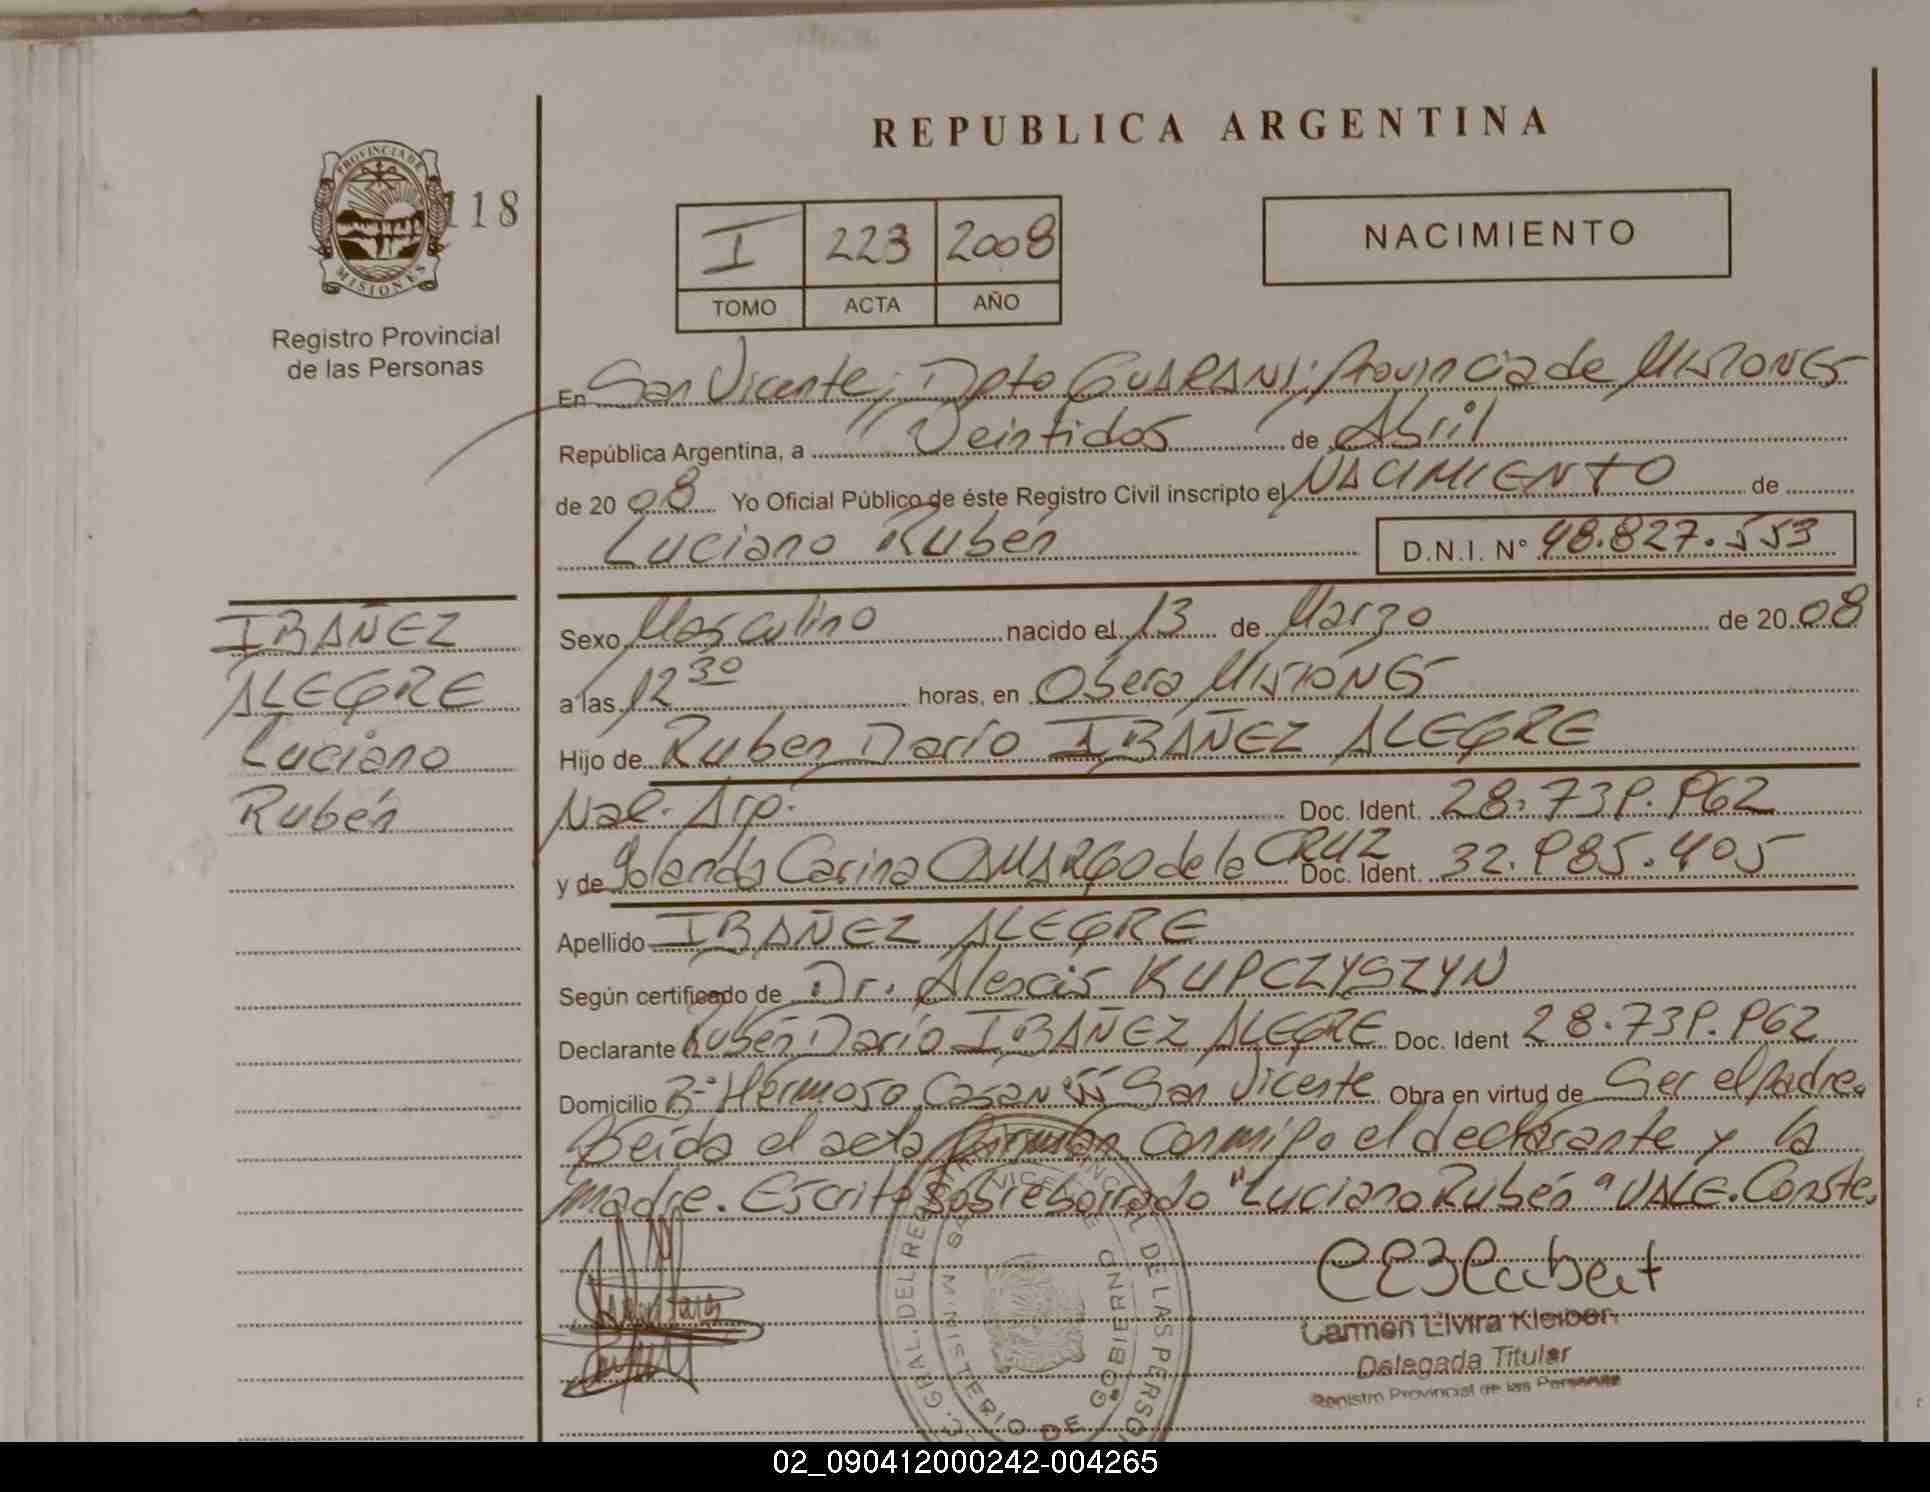 REPUBLICA ARGENTINA
PROVINCIA DE
MISIONES
118
Registro Provincial
de las Personas
I 223 2008
TOMO ACTA AÑO
NACIMIENTO
En San Vicente, Dpto GUARANI; Provincia de MISIONES
República Argentina, a Veintidos de Abril
de 2008 Yo Oficial Público de éste Registro Civil inscripto el NACIMIENTO de
Luciano Rubén D.N.I. N° 48.827.553
IBAÑEZ
ALEGRE
Luciano
Rubén
Sexo Masculino nacido el 13 de Marzo de 2008
a las 12 30 horas, en Oberá MISIONES
Hijo de Ruben Darío IBAÑEZ ALEGRE
Nal. Arg. Doc. Ident. 28.739.962
y de Yolanda Carina CAMARGO de la CRUZ Doc. Ident. 32.985.405
Apellido IBAÑEZ ALEGRE
Según certificado de Dr. Alexis KUPCZYSZYN
Declarante Rubén Darío IBAÑEZ ALEGRE Doc. Ident 28.739.962
Domicilio B° Hermoso Casa San Vicente Obra en virtud de Ser el padre.
Leída el acta firman conmigo el declarante y la
madre. Escrito sobreborrado "Luciano Rubén" VALE. Conste.
Carmen Elvira Kleiber
Delegada Titular
Registro Provincial de las Personas
GRAL. DEL REG PROVINCIAL DE LAS PERSO
MINISTERIO DE GOBIERNO
02_090412000242-004265